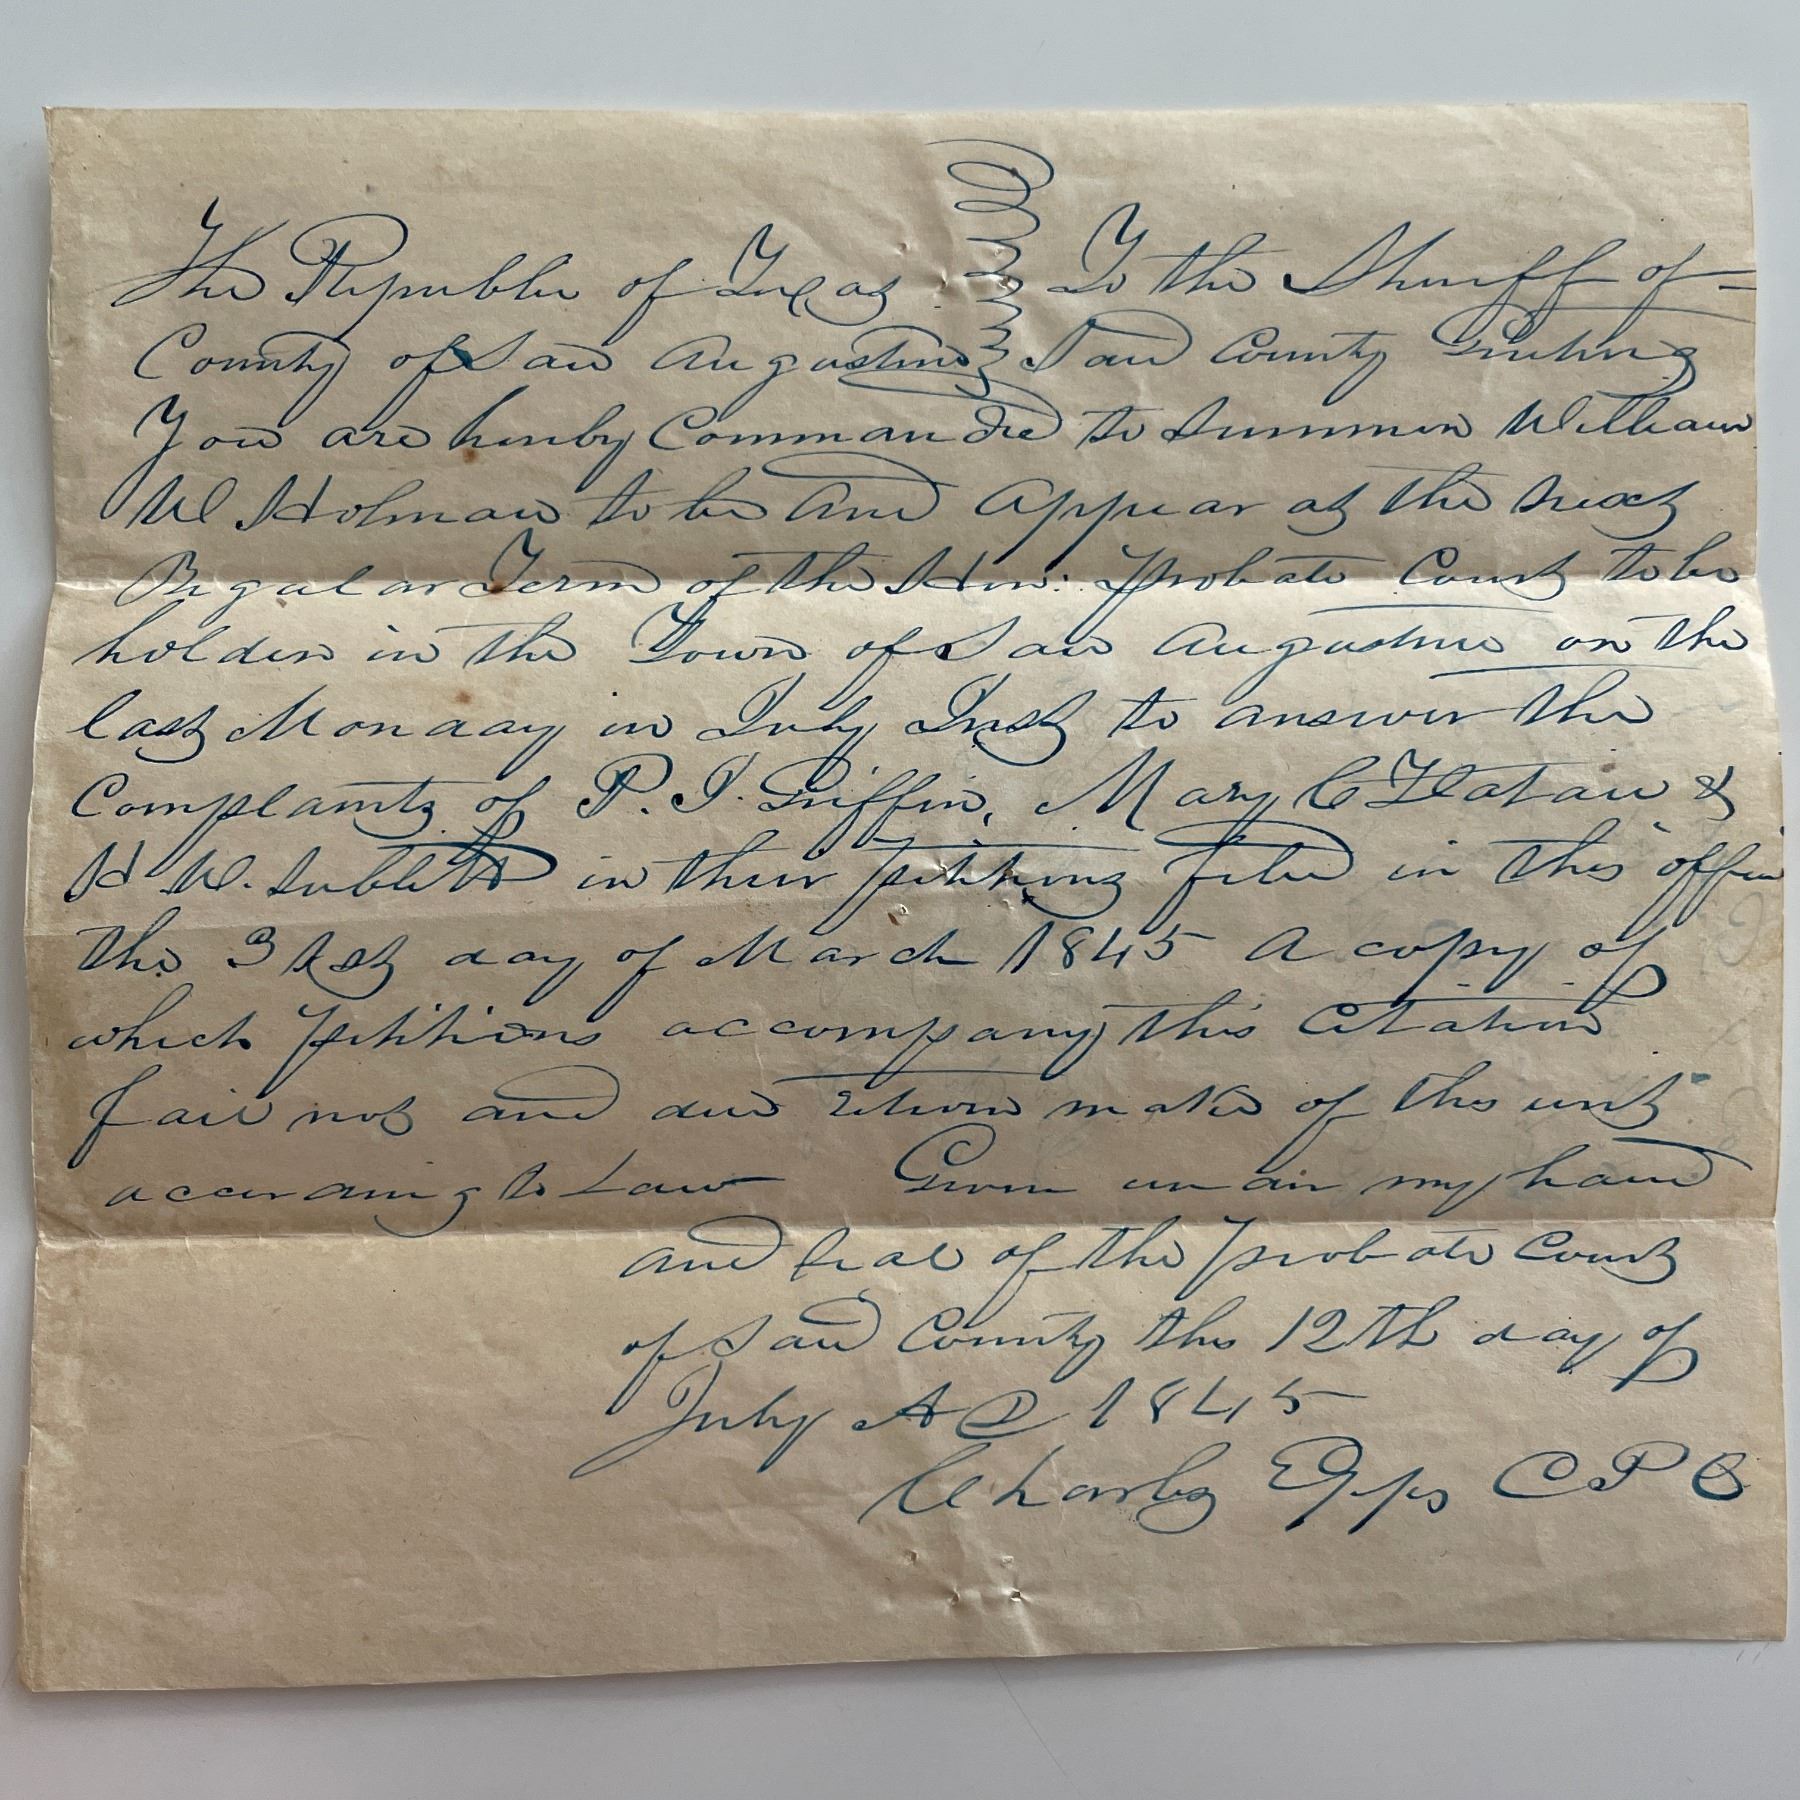 The Republic of Texas To the Sheriff of =
County of San Augustine Said County Greeting
You are hereby Commanded to Summon William
W Holman to be and appear at the next
Regular Term of the Hon: Probate Court to be
holden in the Town of San Augustine on the
last Monday in July Inst to answer the
Complaints of P. J. Griffin, Mary C &
H W. Sublett in their petitions filed in this office
the 31st day of March 1845 A copy of
which petitions accompany this Citation
fail not and due return make of this writ
according to Law Given under my hand
and seal of the Probate Court
of Said County this 12th day of
July A D 1845
Charles Epps C P C